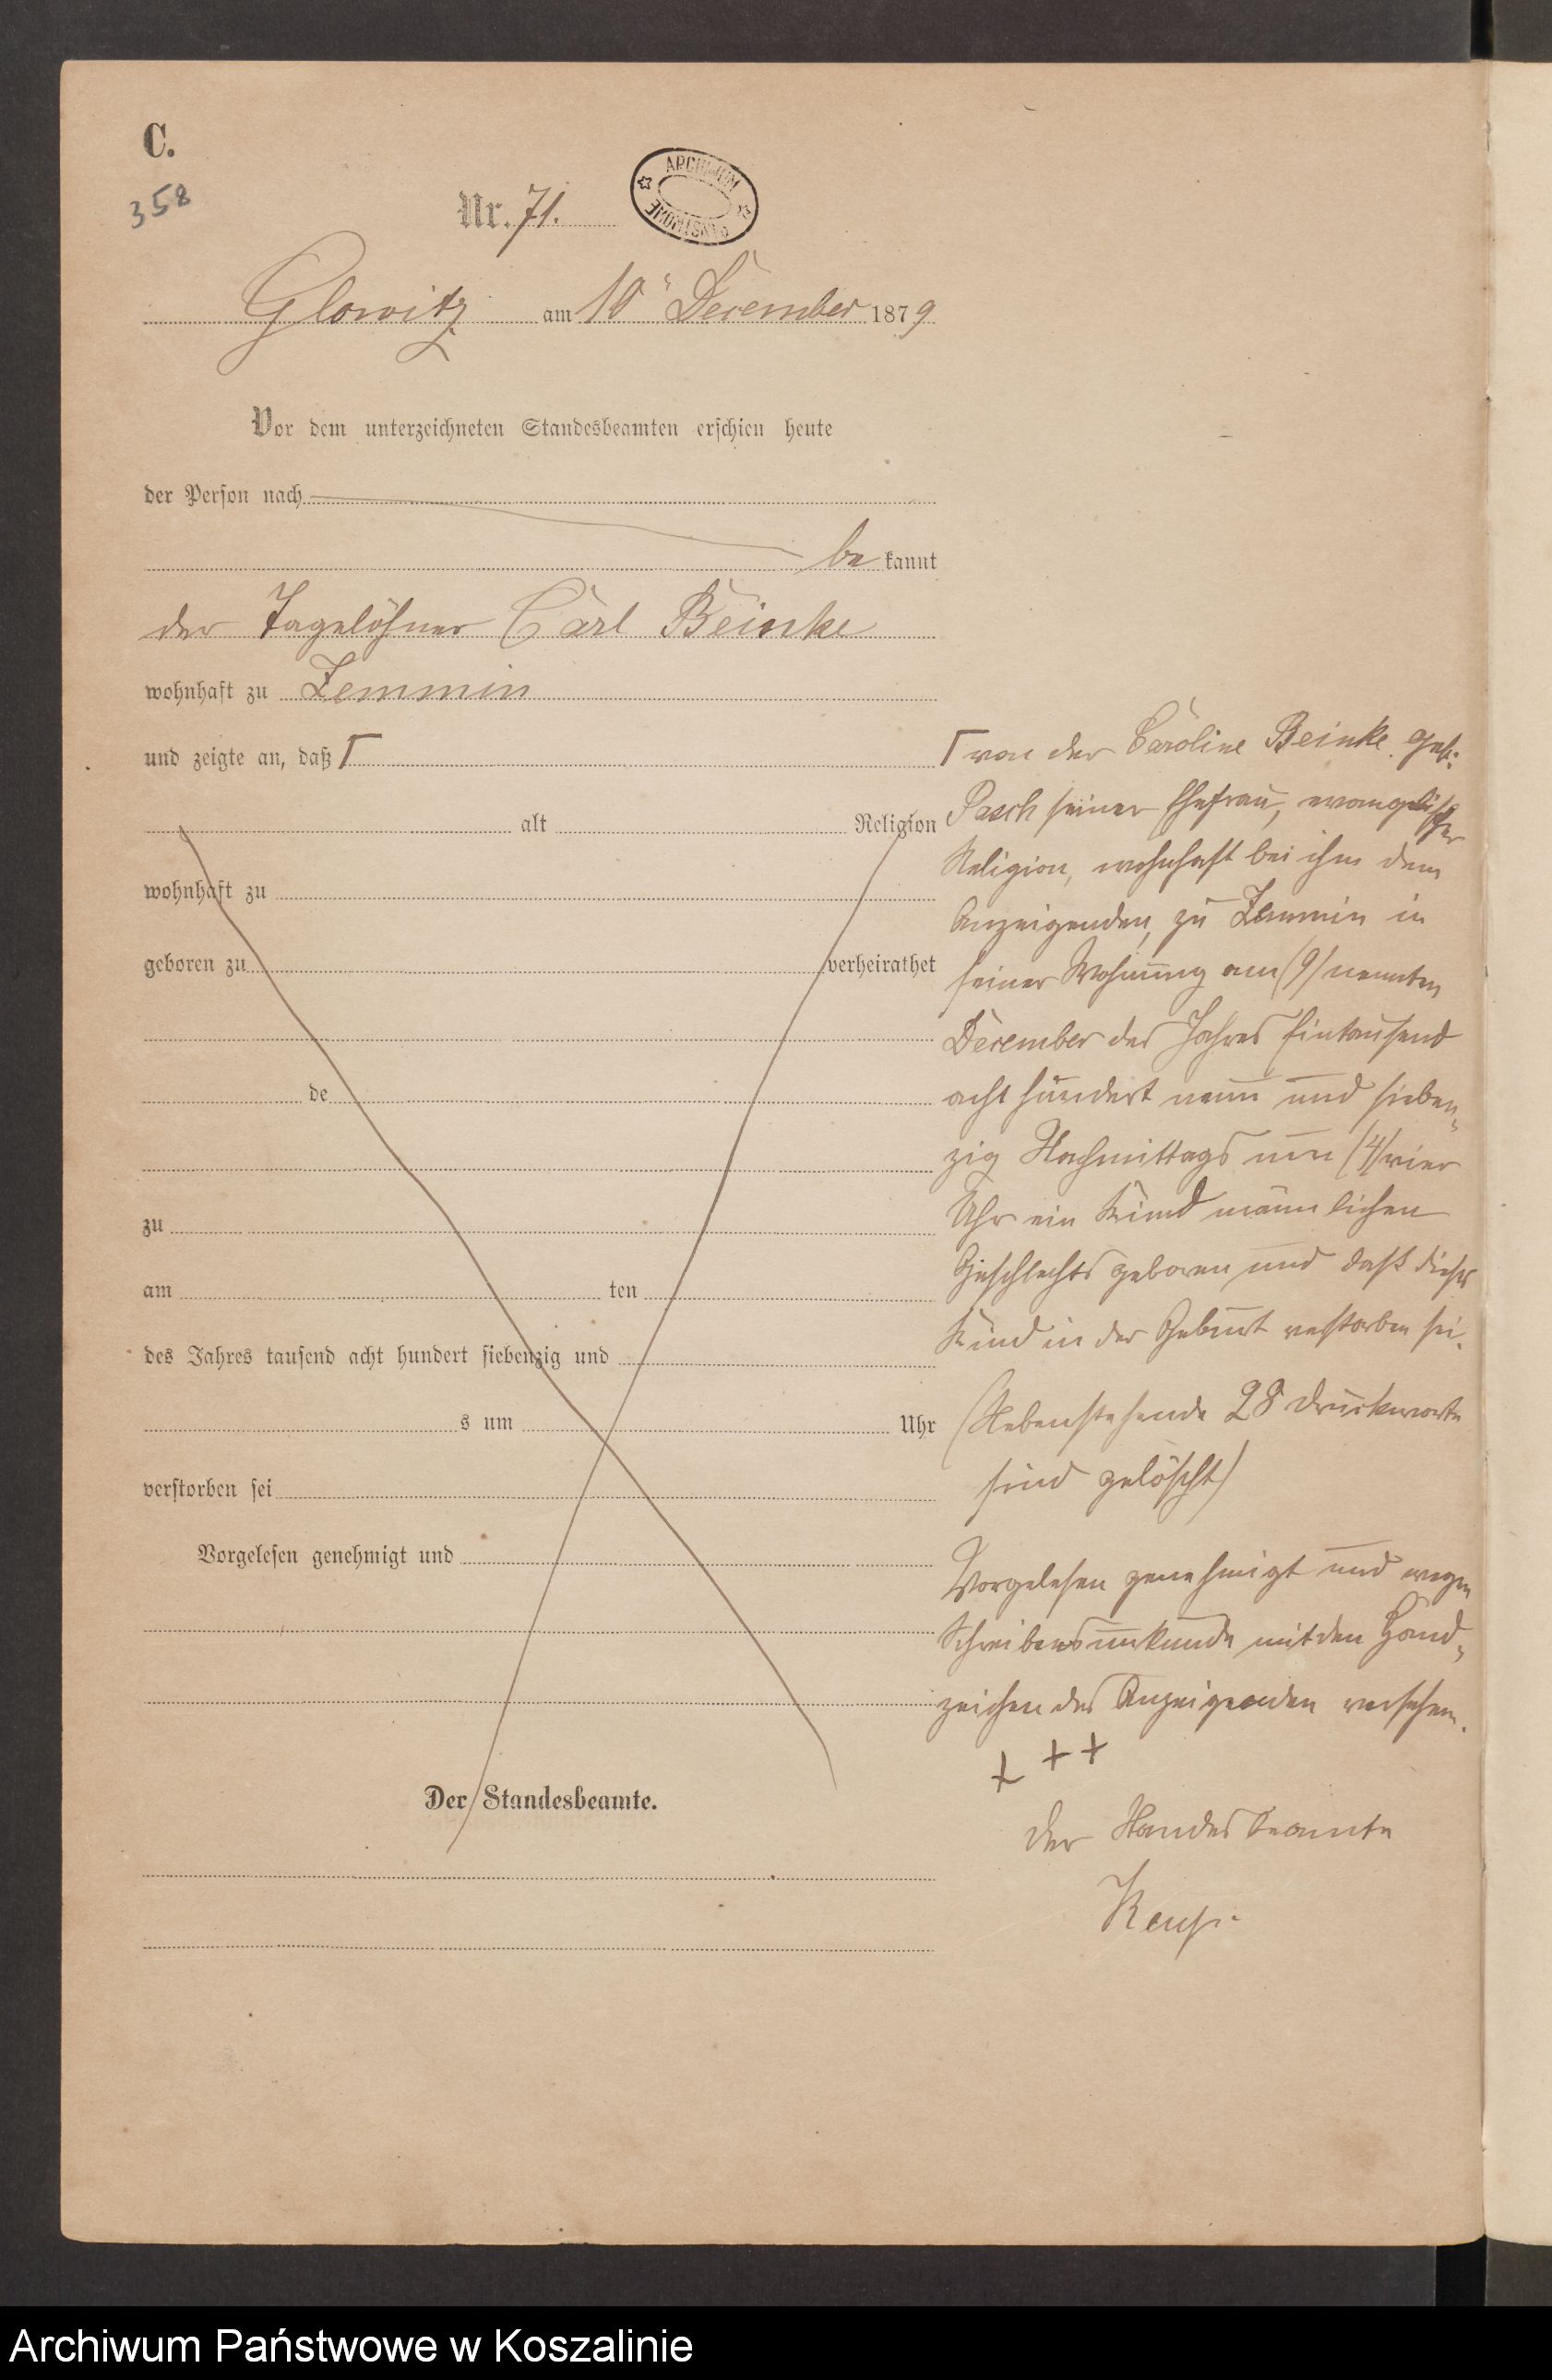 C.
358
Nr. 71.
ARCHIWUM
PAŃSTWOWE
Glowitz am 10" December 1879
Vor dem unterzeichneten Standesbeamten erschien heute
der Person nach
be kannt
der Tagelöhner Carl Beinke
wohnhaft zu Zemmin
und zeigte an, daß Γ
alt Religion
wohnhaft zu
geboren zu verheirathet
de
zu
am ten
des Jahres tausend acht hundert siebenzig und
s um Uhr
verstorben sei
Vorgelesen genehmigt und
Der Standesbeamte.
Γ von der Caroline Beinke geb:
Pasch seiner Ehefrau, evangelischer
Religion, wohnhaft bei ihm dem
Anzeigenden, zu Zemmin in
seiner Wohnung am (9) neunten
December des Jahres Eintausend
acht hundert neun und sieben„
zig Nachmittags um (4) vier
Uhr ein Kind männlichen
Geschlechts geboren und daß dieses
Kind in der Geburt verstorben sei.
(Nebenstehende 28 Druckworte
sind gelöscht)
Vorgelesen genehmigt und wegen
Schreibensunkunde mit den Hand„
zeichen des Anzeigenden versehen.
+ + +
Der Standesbeamte
Archiwum Państwowe w Koszalinie